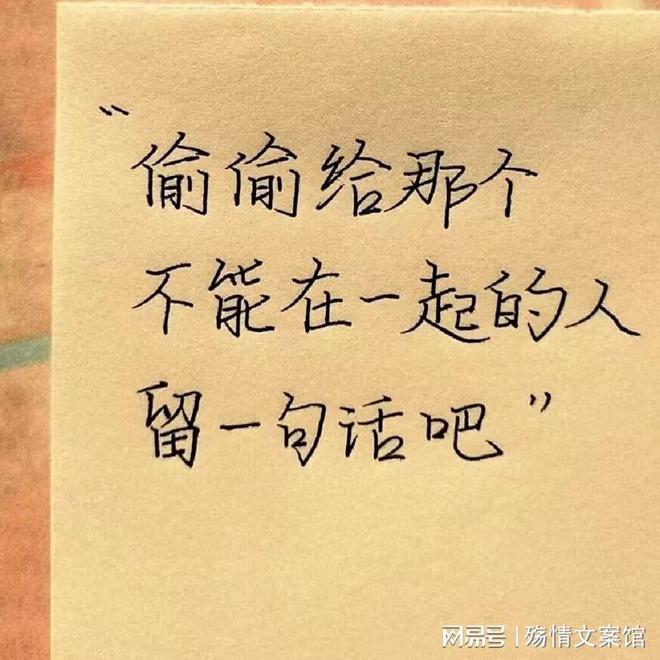 “偷偷给那个
不能在一起的人
留一句话吧”
网易号 | 殇情文案馆